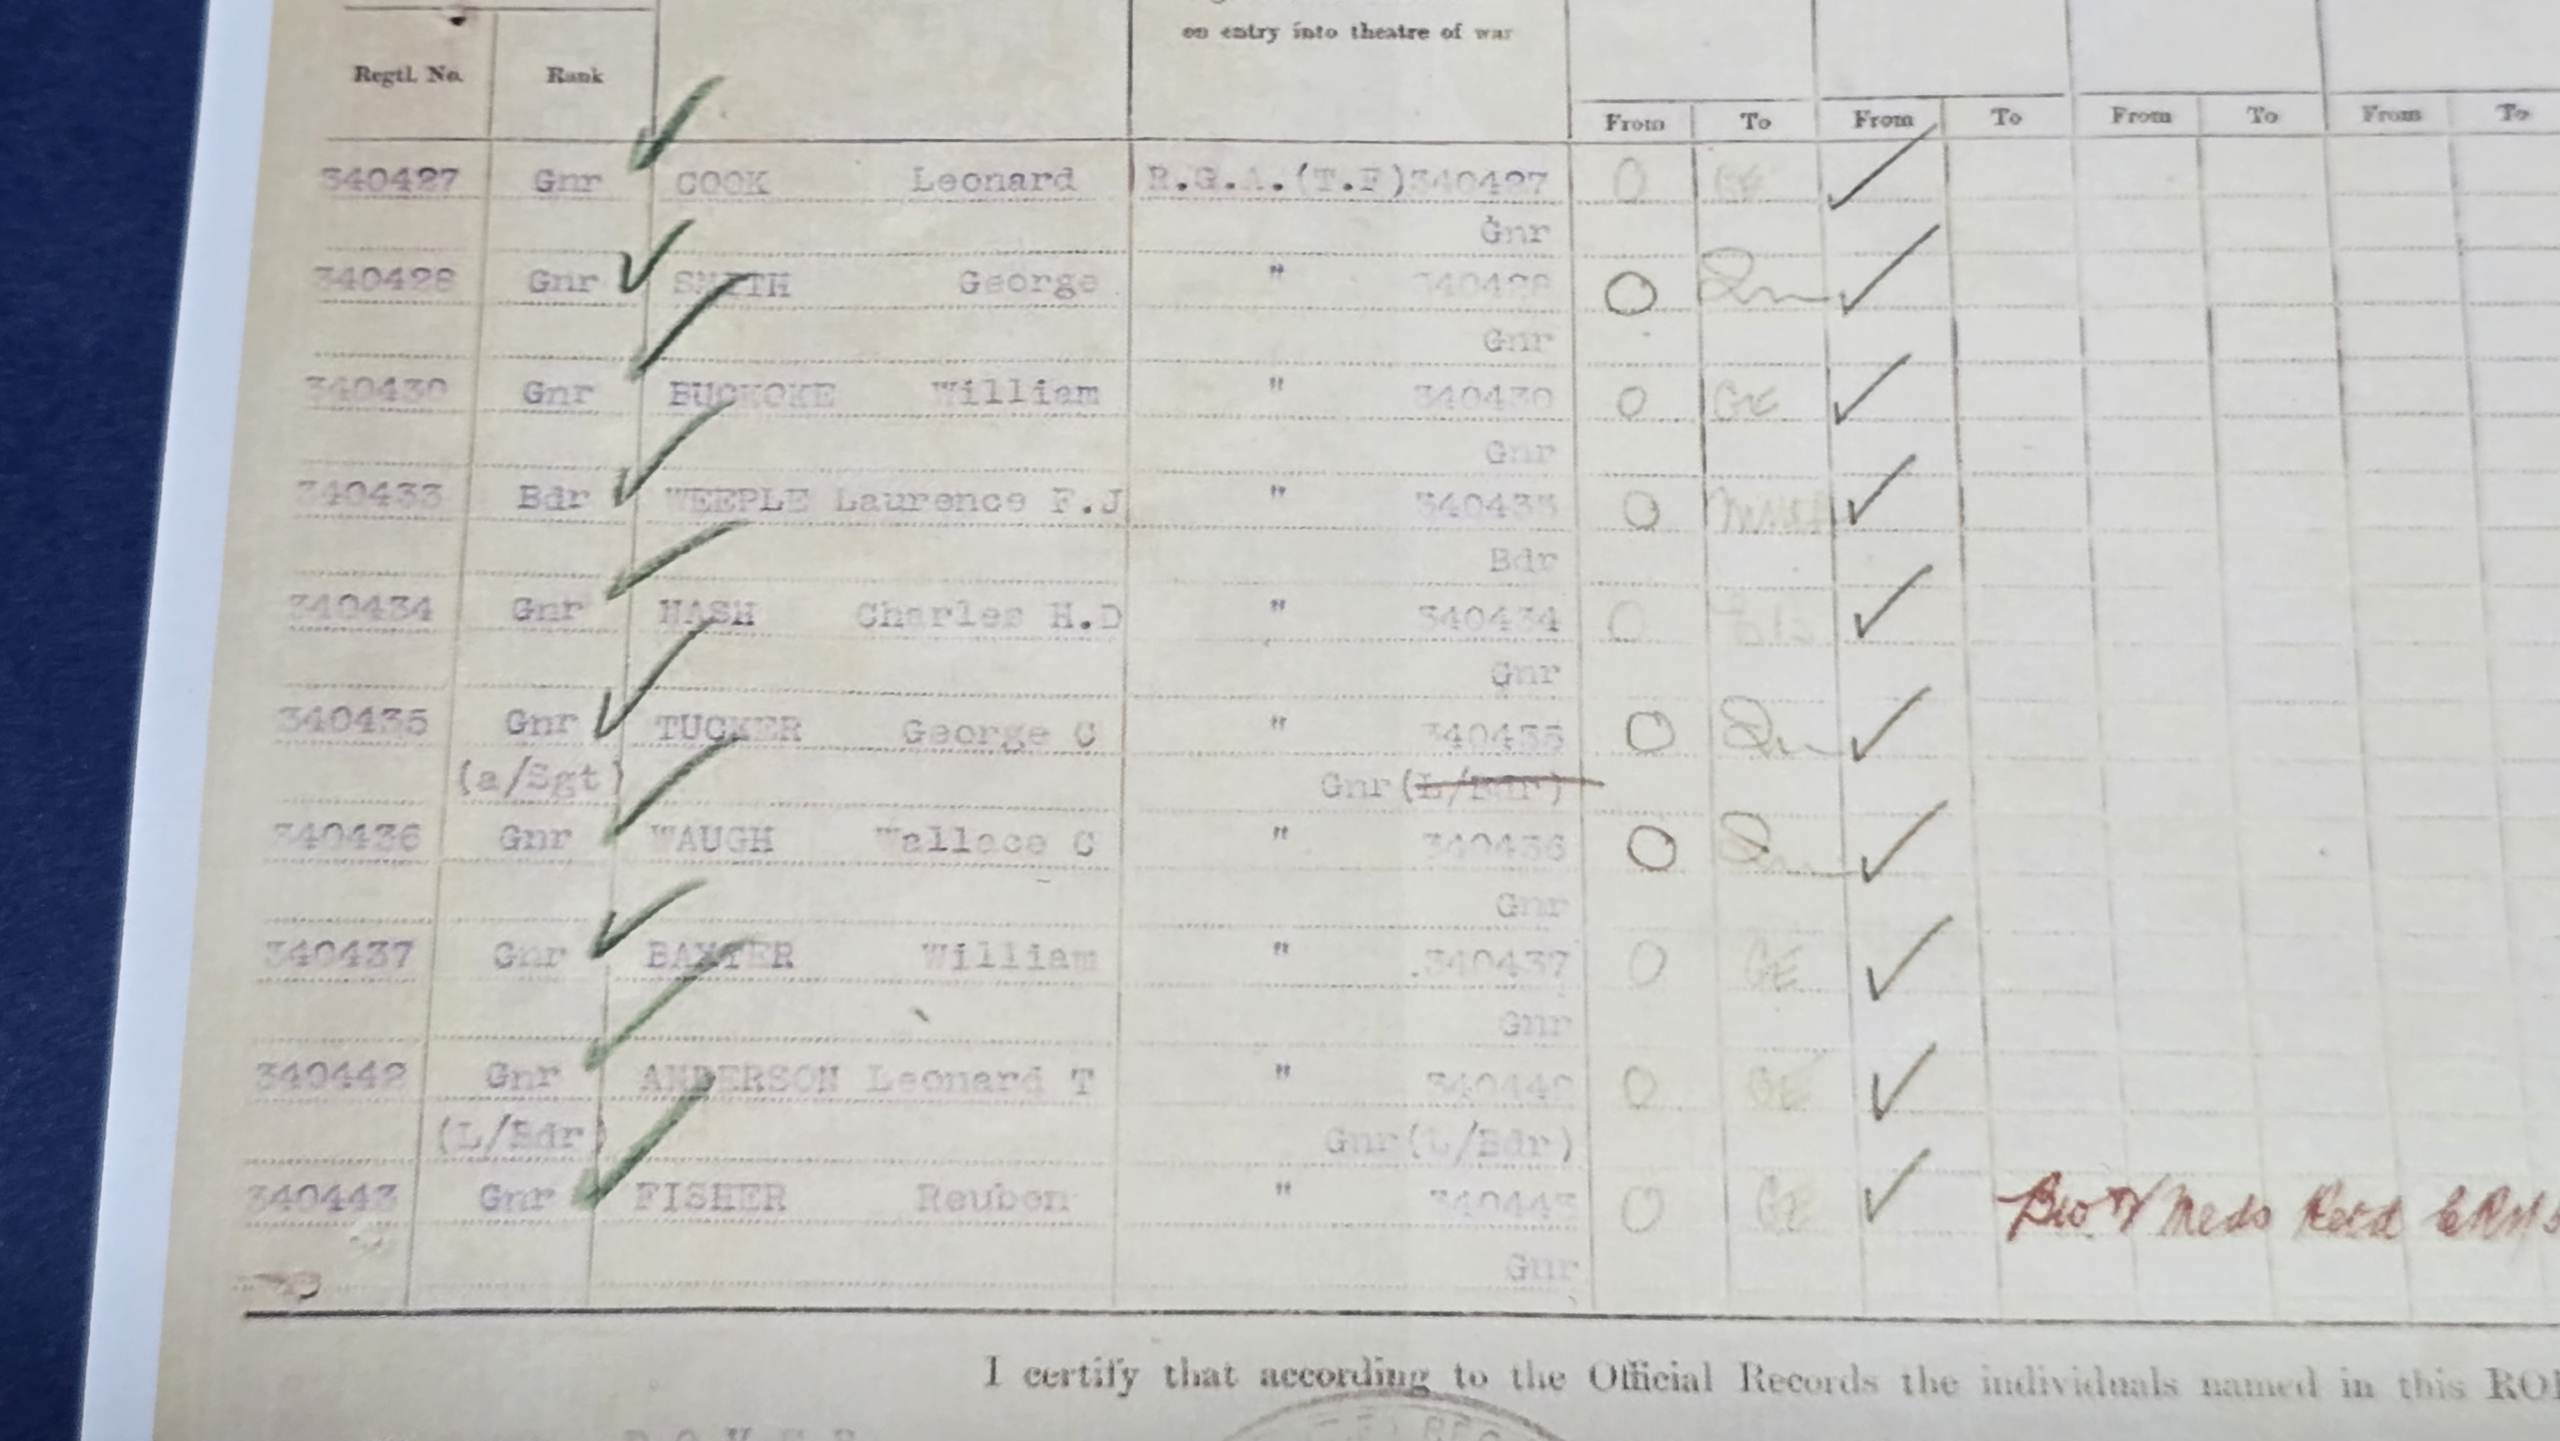 on entry into theatre of war
Regtl. No. Rank
From To From To From To From To
340427 Gnr COOK Leonard R.G.A.(T.F)340427
Gnr
340428 Gnr SMITH George " 340428
Gnr
340430 Gnr BUCKOKE William " 340430
Gnr
340433 Bdr WEEPLE Laurence F.J " 340433
Bdr
340434 Gnr Charles H.D " 340434
Gnr
340435 Gnr TUCKER George C " 340435
(a/Sgt) Gnr (L/Bdr)
340436 Gnr WAUGH Wallace C " 340436
Gnr
340437 Gnr BAXTER William " 340437
Gnr
340442 Gnr ANDERSON Leonard T " 340442
(L/Bdr) Gnr(L/Bdr)
340443 Gnr FISHER Reuben " 340443 GE Meds Recd
Gnr
I certify that according to the Official Records the individuals named in this